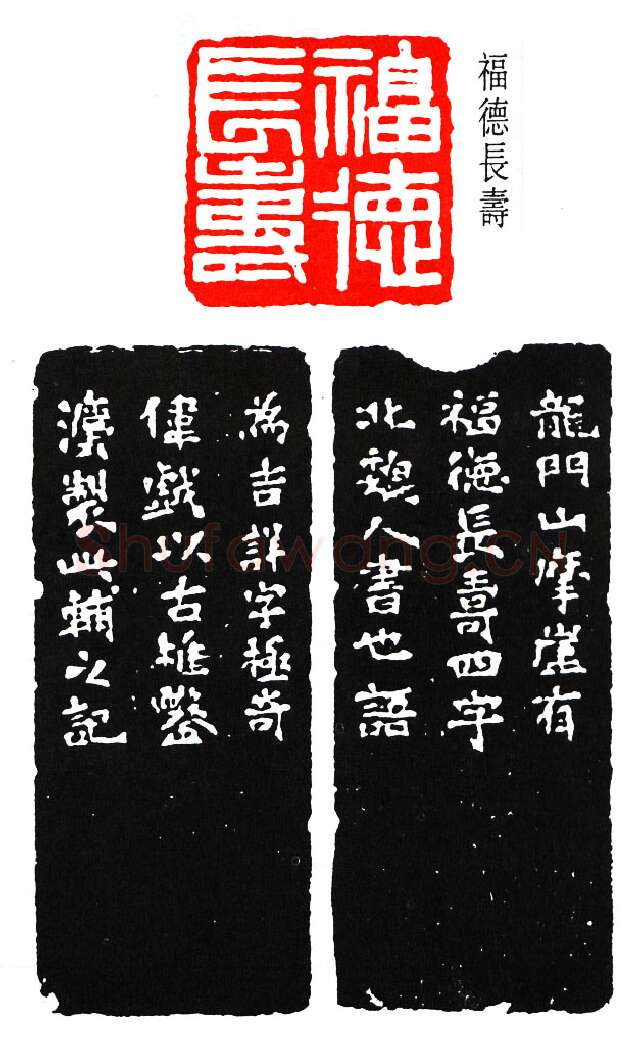 福德長壽
福德長壽
龍門山摩崖有
福德長壽四字
北魏人書也語
為吉詳字極奇
偉戲以古椎鑿
灋製此輔之記
Shufawang.CN